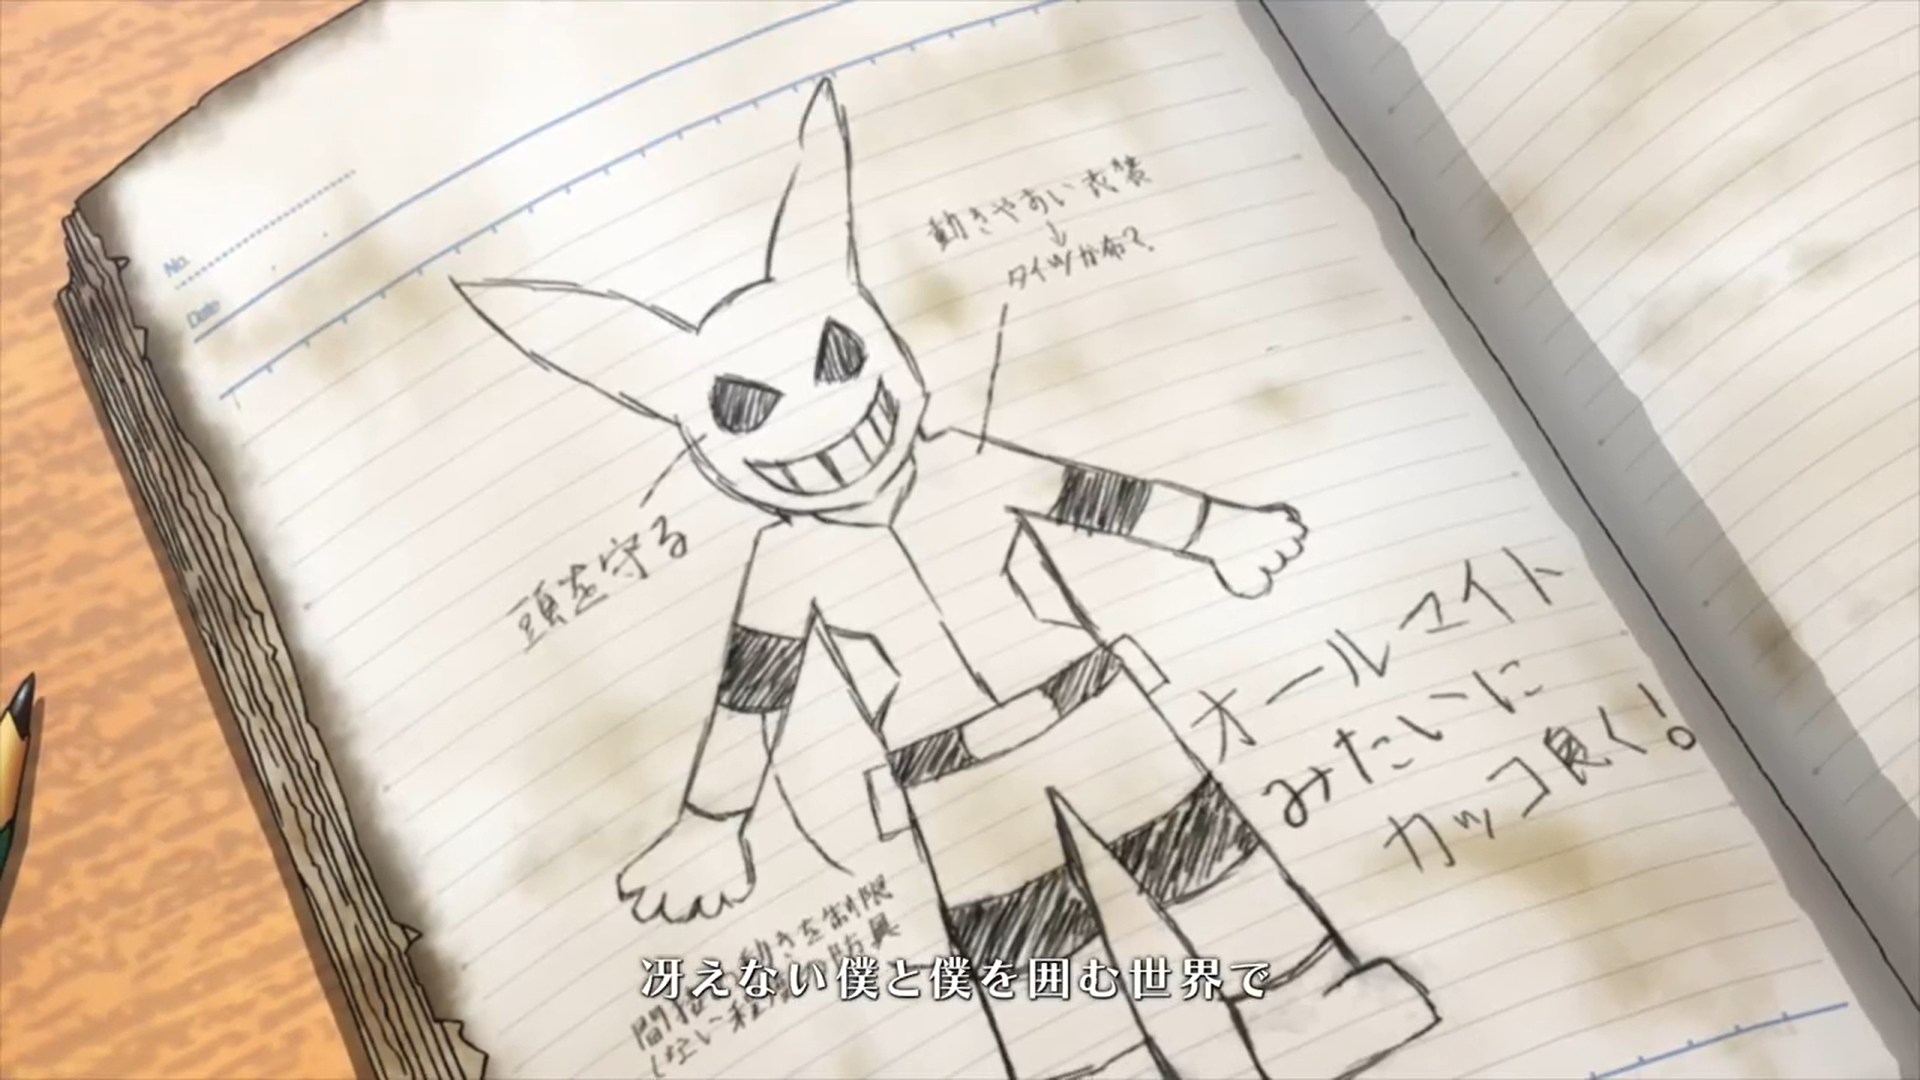 No.
Date
動きやすい衣装
↓
タイツが命?
頭を守る
オールマイト
みたいに
カッコ良く!
動きを制限
しない程度
防具
冴えない僕と僕を囲む世界で